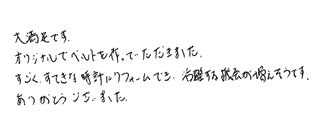 大満足です。
オリジナルでベルトを作っていただきました。
すごく、すてきな時計にリフォームでき、活躍する機会が増えそうです。
ありがとうございました。